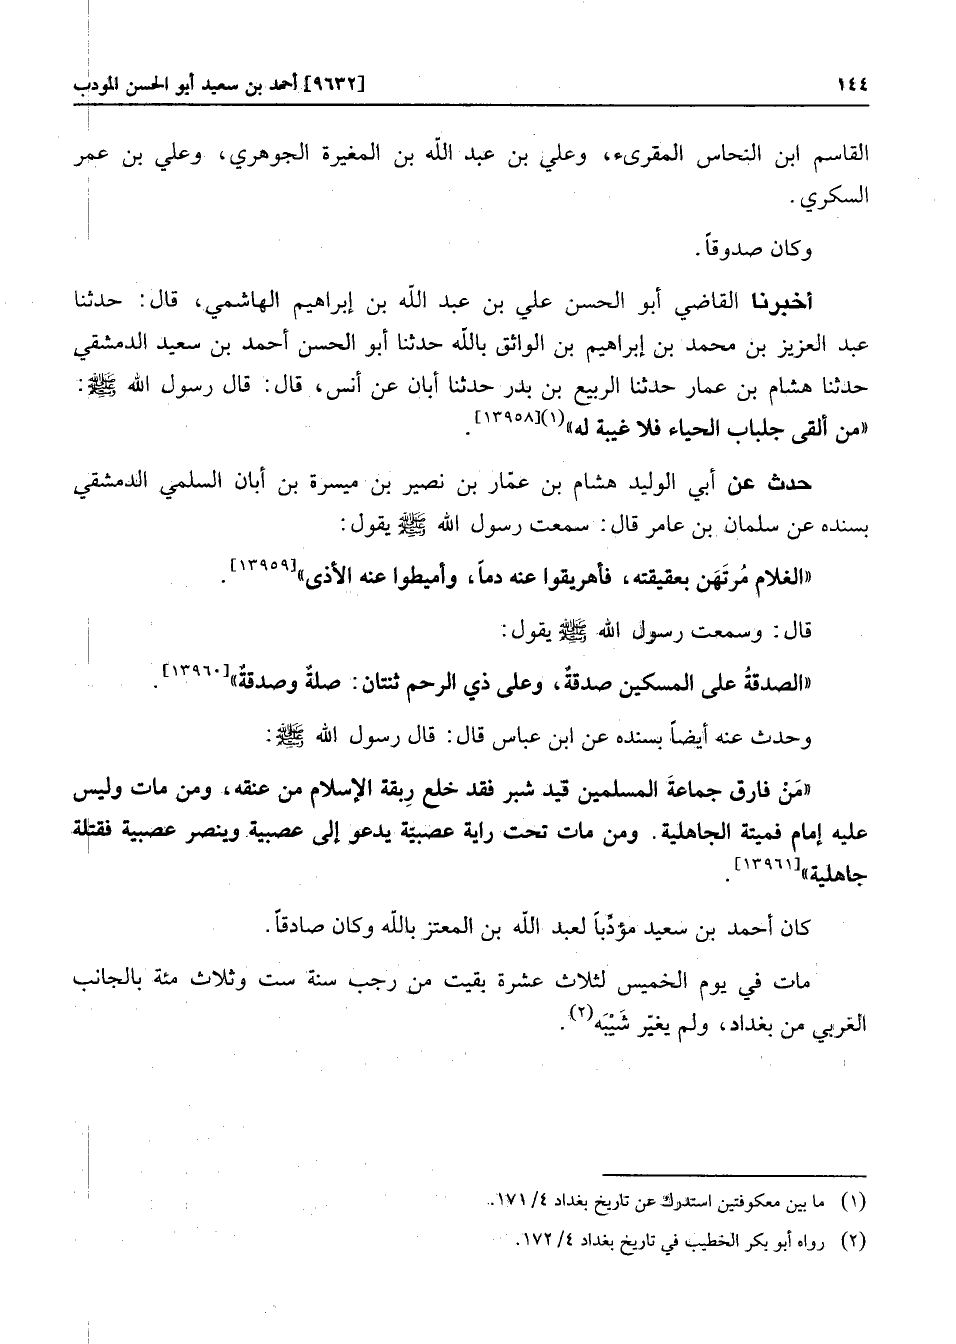 ١٤٤ [٩٦٣٢] أحمد بن سعيد أبو الحسن المودب
القاسم ابن النحاس المقرىء، وعلي بن عبد اللّه بن المغيرة الجوهري، وعلي بن عمر
السكري.
وكان صدوقاً.
أخبرنا القاضي أبو الحسن علي بن عبد اللّه بن إبراهيم الهاشمي، قال: حدثنا
عبد العزيز بن محمد بن إبراهيم بن الواثق باللّه حدثنا أبو الحسن أحمد بن سعيد الدمشقي
حدثنا هشام بن عمار حدثنا الربيع بن بدر حدثنا أبان عن أنس، قال: قال رسول الله ﷺ:
«من ألقى جلباب الحياء فلا غيبة له»(١)[١٣٩٥٨].
حدث عن أبي الوليد هشام بن عمّار بن نصير بن ميسرة بن أبان السلمي الدمشقي
بسنده عن سلمان بن عامر قال: سمعت رسول الله ﷺ يقول:
«الغلام مُرتَهَن بعقيقته، فأهريقوا عنه دماً، وأميطوا عنه الأذى»[١٣٩٥٩].
قال: وسمعت رسول الله ﷺ يقول:
«الصدقةُ على المسكين صدقةٌ، وعلى ذي الرحم ثنتان: صلةٌ وصدقةٌ»[١٣٩٦٠].
وحدث عنه أيضاً بسنده عن ابن عباس قال: قال رسول الله ﷺ:
«مَنْ فارق جماعةَ المسلمين قيد شبر فقد خلع رِبقة الإسلام من عنقه، ومن مات وليس
عليه إمام فميتة الجاهلية. ومن مات تحت راية عصبيّة يدعو إلى عصبية وينصر عصبية فقتلة
جاهلية»[١٣٩٦١].
كان أحمد بن سعيد مؤدِّباً لعبد اللّه بن المعتز باللّه وكان صادقاً.
مات في يوم الخميس لثلاث عشرة بقيت من رجب سنة ست وثلاث مئة بالجانب
الغربي من بغداد، ولم يغيّر شَيْبَه(٢).
(١) ما بين معكوفتين استدرك عن تاريخ بغداد ٤/ ١٧١.
(٢) رواه أبو بكر الخطيب في تاريخ بغداد ٤/ ١٧٢.